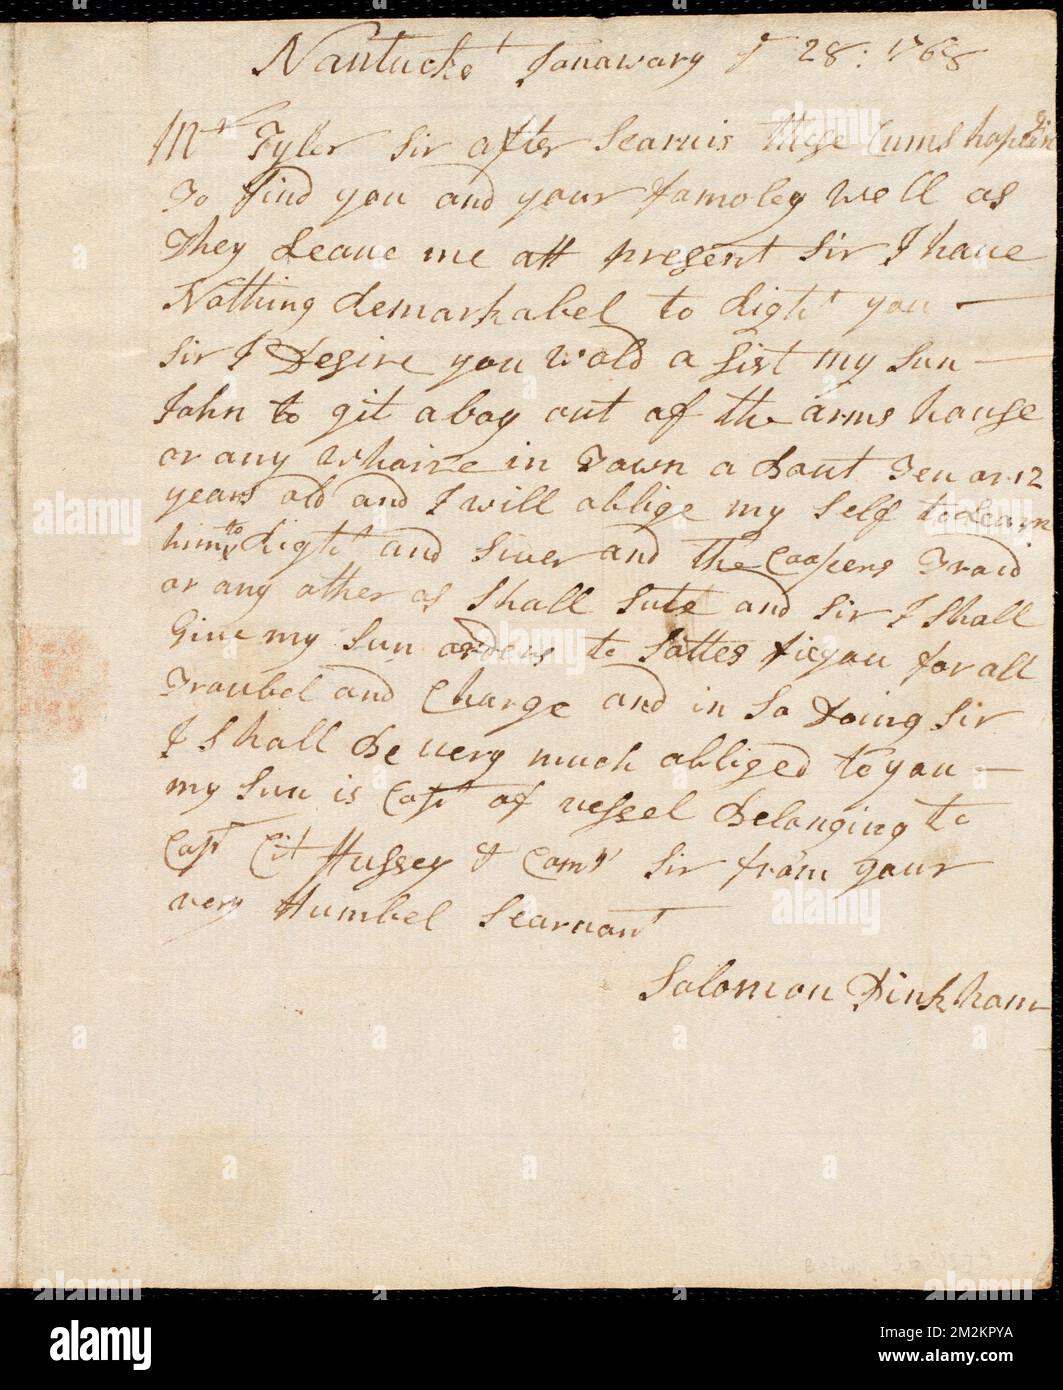 Nantucket Janawary ye 28: 1768
Mr Tyler Sir after Searuis these Cums hopein
To find you and your famoley well as
They Leave me att present Sir I have
Nothing Remarkabel to Right you —
Sir I Desire you wold a Sist my Sun —
John to git a boy out of the arms house
or any whaire in Town a Bout Ten or 12
years old and I will oblige my Self to Learn
him to Right and Siuer and the Coopers Traid
or any other as Shall Sute and Sir I Shall
Giue my Sun orders to Sattes fie you for all
Troubel and Charge and in So Doing Sir
I Shall Be uery much obliged to you —
my Sun is Capt of vessel Belonging to
Capt Hussey & Comy Sir from your
very Humbel Searuant
Solomon Pinkham
alamy
Image ID: 2M2KPYA
www.alamy.com